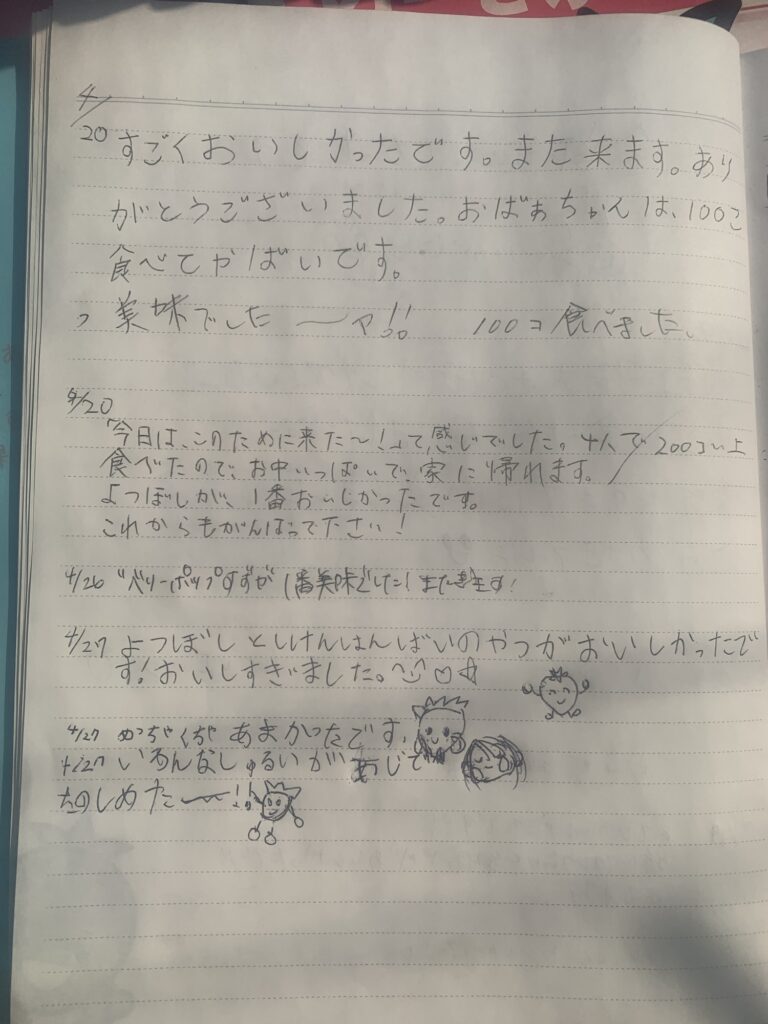 4/
20 すごくおいしかったです。また来ます。あり
がとうございました。おばぁちゃんは、100こ
食べてやばいです。
美味でした 〜ア!! 100コ食べました。
4/20
「今日は、このために来た〜!」って感じでした。4人で200コ以上
食べたので、お中いっぱいで、家に帰れます。
よつぼしが、1番おいしかったです。
これからもがんばって下さい!
4/26 ベリーポップすずが1番美味でした! また来ます!
4/27 よつぼしとしけんはんばいのやつがおいしかったで
す!おいしすぎました。
4/27 めっちゃくちゃあまかったです。
4/27 いろんなしゅるいが
たのしめた〜!!